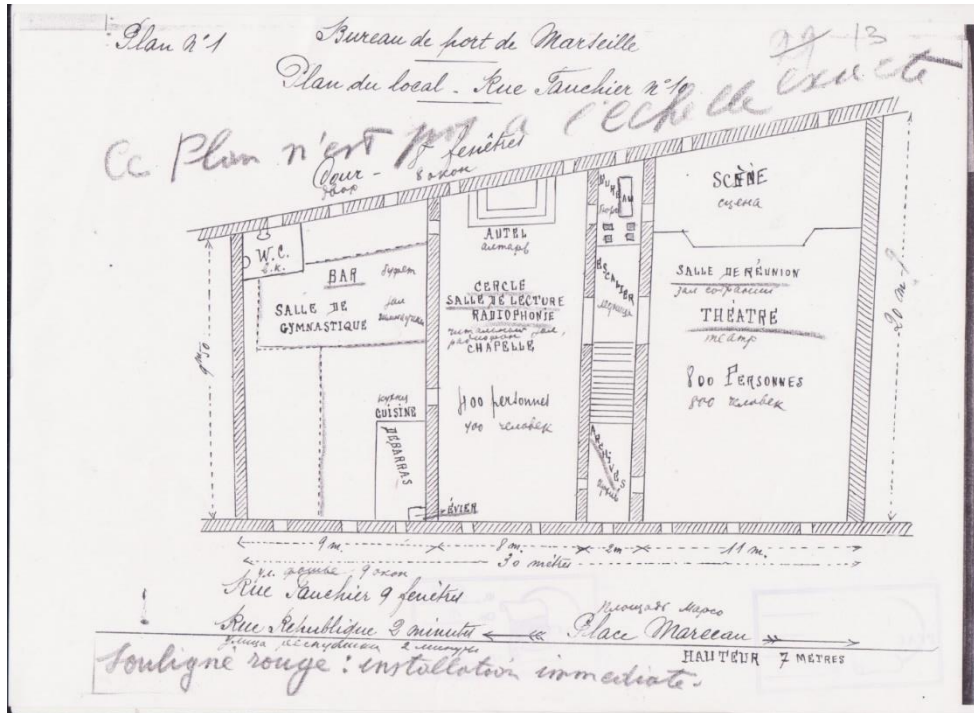 Plan n°1
Bureau de port de Marseille
13
Plan du local - Rue Fauchier n°10
Ce Plan n'est pas à l'echelle exacte
Cour - 8 fenêtres
двор 8 окон
W.C.
в.к.
BAR буфет
SALLE DE
GYMNASTIQUE
зал
гимнастики
кухня
CUISINE
DÉBARRAS
ÉVIER
AUTEL
алтарь
CERCLE
SALLE DE LECTURE
RADIOPHONIE
CHAPELLE
400 personnes
400 человек
BUREAU
бюро
ESCALIER
лестница
ARCHIVES
архив
SCÈNE
сцена
SALLE DE RÉUNION
зал собрании
THÉATRE
театр
800 PERSONNES
800 человек
9m50
20 m.
9 m. 8 m. 2m 11 m.
30 mètres
ул. фошье 9 окон
Rue Fauchier 9 fenêtres
площадь Марсо
Rue République 2 minutes Place Marceau
улица республики 2 минуты
HAUTEUR 7 MÈTRES
Souligné rouge : installation immediate.